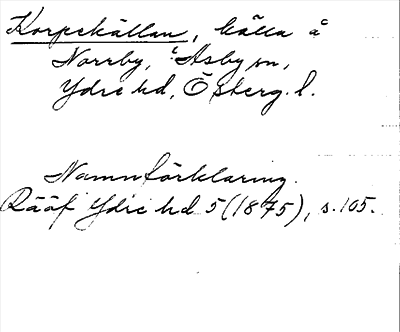 Korpekällan, källa å
Norrby, i Asby sn,
Ydre hd, Österg. l.
Namnförklaring.
Rääf Ydre hd 5 (1875), s. 105.